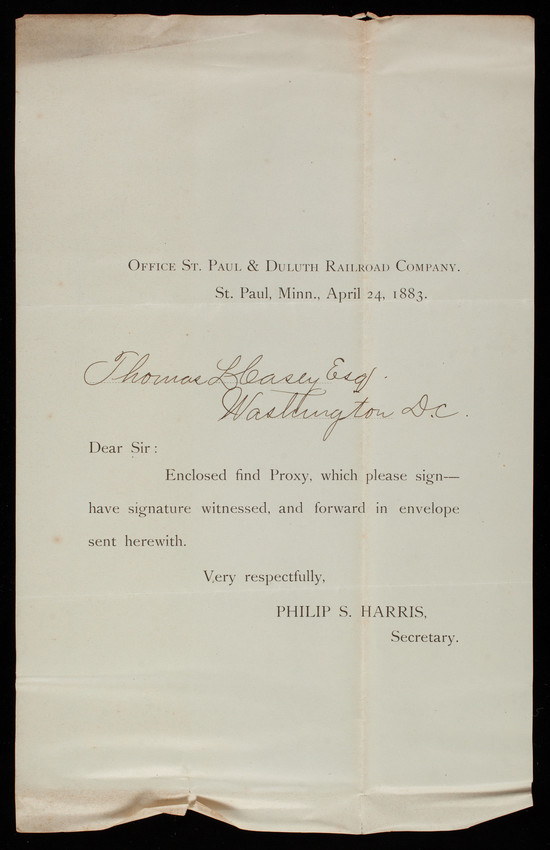 Office St. Paul & Duluth Railroad Company.
St. Paul, Minn., April 24, 1883.
Thomas L Casey Esq.
Washington D.C.
Dear Sir:
Enclosed find Proxy, which please sign—
have signature witnessed, and forward in envelope
sent herewith.
Very respectfully,
PHILIP S. HARRIS,
Secretary.